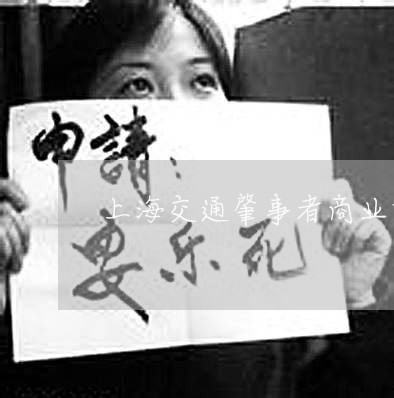 申請：
上海交通肇事者商业
要乐死